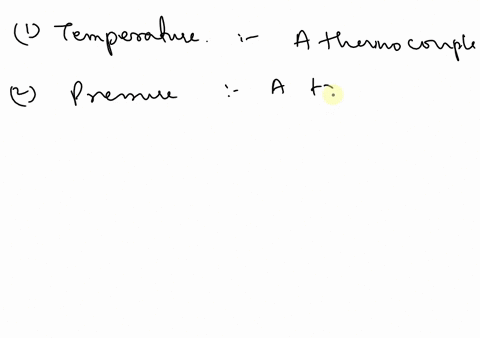 (1) Temperature. :- A thermocouple
(2) Pressure :- A